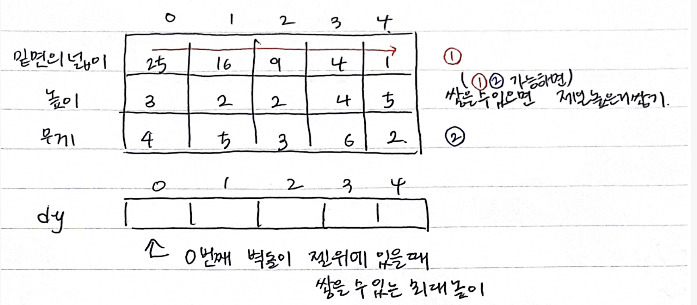 0 1 2 3 4
밑면의 넓이 25 16 9 4 1 ①
(①② 가능하면)
높이 3 2 2 4 5 쌓을수있으면 제일높은데쌓기.
무게 4 5 3 6 2 ②
0 1 2 3 4
dy
0번째 벽돌이 젤위에 있을때
쌓을 수 있는 최대 높이